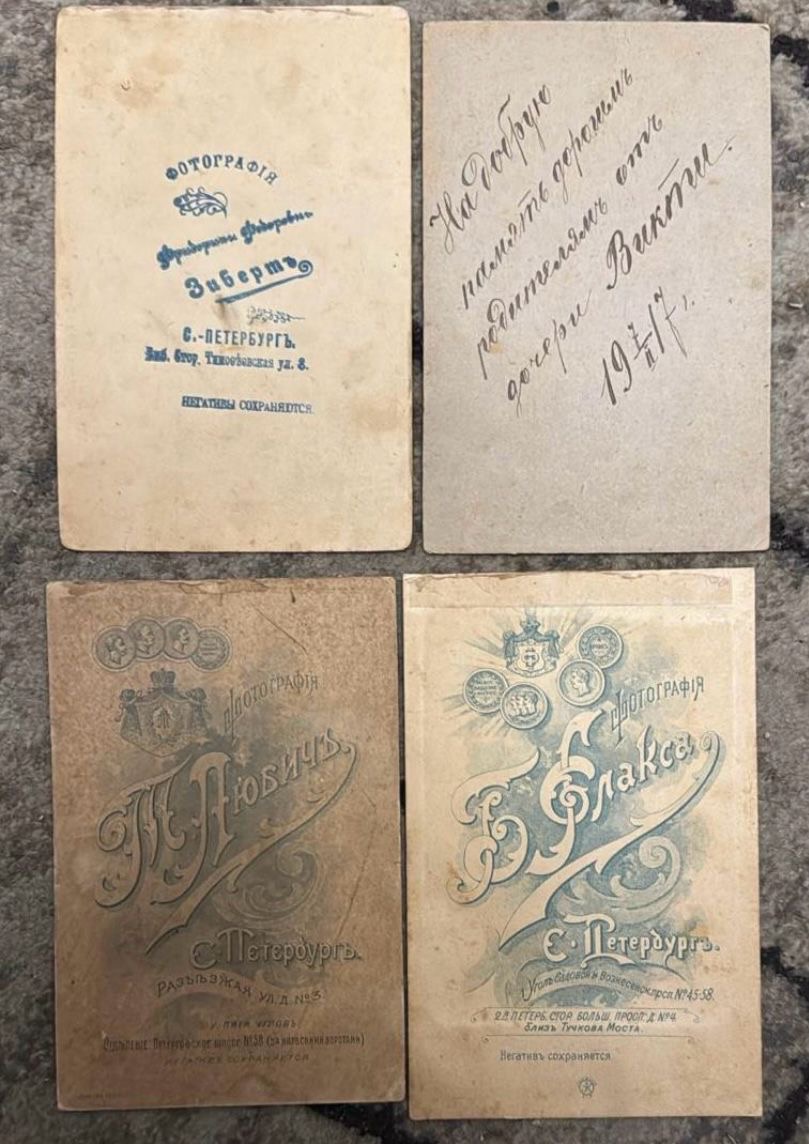 ФОТОГРАФІЯ
Фридерики Федоровны
Зибертъ
С.-ПЕТЕРБУРГЪ.
Выб. Стор. Тимоѳеевская ул. 8.
НЕГАТИВЫ СОХРАНЯЮТСЯ.
На добрую
память дорогимъ
родителямъ отъ
дочери Викти.
19 7/II 17 г.
ФОТОГРАФІЯ
М. Любичъ.
С. Петербургъ.
РАЗЪѢЗЖАЯ УЛ. Д. №3.
У ПЯТИ УГЛОВЪ
ОТДѢЛЕНІЕ: ПЕТЕРГОФСКОЕ ШОССЕ №58 (ЗА НАРВСКИМИ ВОРОТАМИ)
НЕГАТИВЪ СОХРАНЯЕТСЯ
ФОТОГРАФІЯ
Б. Блакса
С. Петербургъ.
Уголъ Садовой и Вознесенск. просп. №45-58.
2Я ПЕТЕРБ. СТОР. БОЛЬШ. ПРОСП. Д. №4
БЛИЗЬ ТУЧКОВА МОСТА.
Негативъ сохраняется